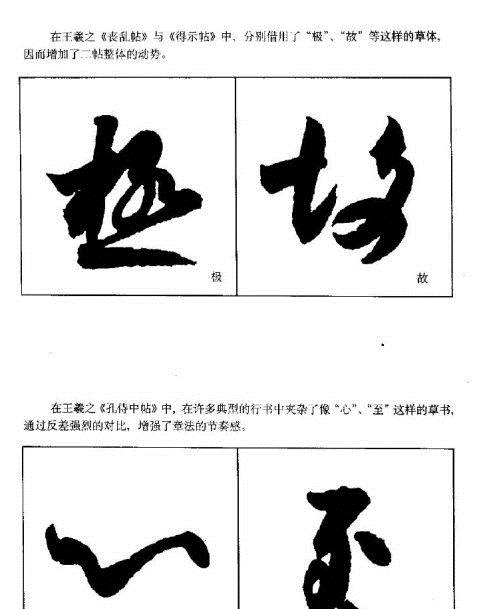 在王羲之《丧乱帖》与《得示帖》中，分别借用了“极”、“故”等这样的草体，
因而增加了二帖整体的动势。
極 故
极 故
在王羲之《孔侍中帖》中，在许多典型的行书中夹杂了像“心”、“至”这样的草书，
通过反差强烈的对比，增强了章法的节奏感。
心 至